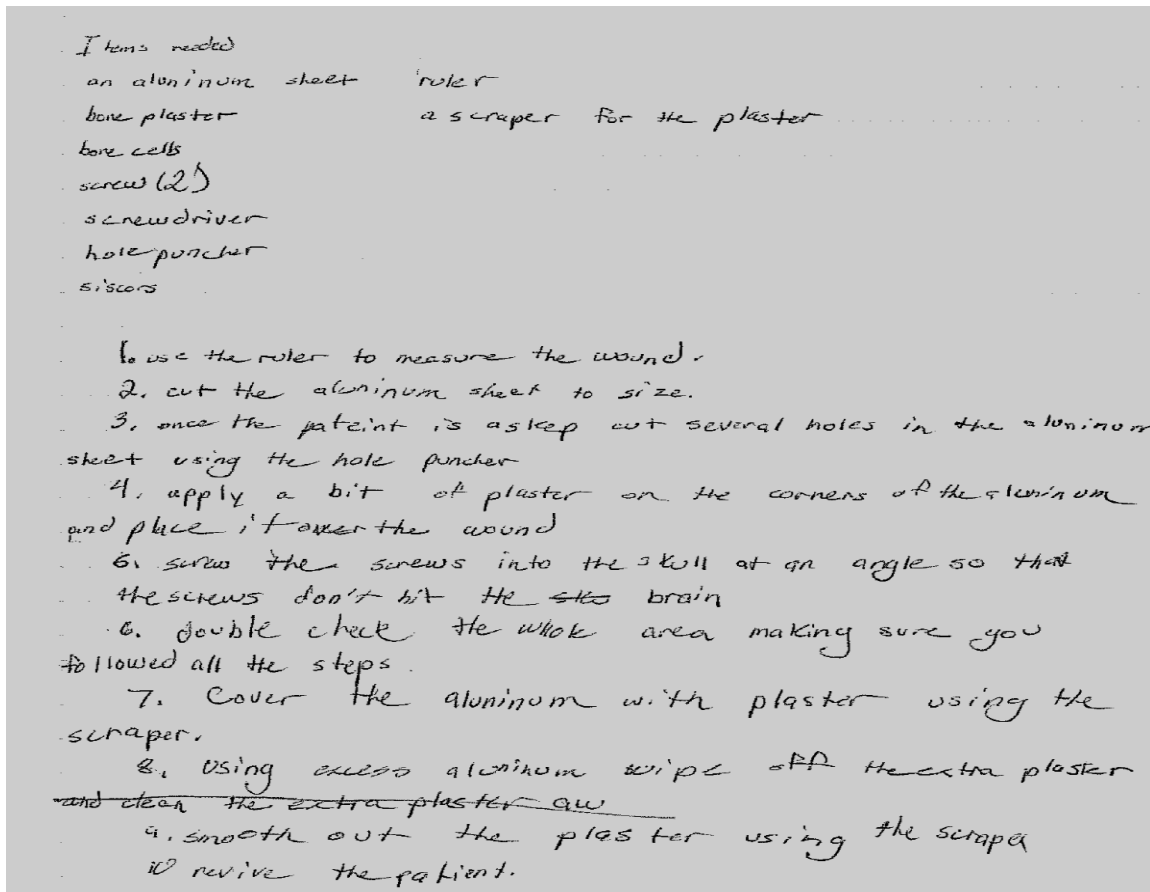 Items needed
an aluninum sheet ruler
bone plaster a scraper for the plaster
bone cells
screw (2)
screwdriver
hole puncher
siscors
1. use the ruler to measure the wound.
2. cut the aluninum sheet to size.
3. once the pateint is asleep cut several holes in the aluninum
sheet using the hole puncher
4. apply a bit of plaster on the corners of the aluninum
and place it over the wound
5. screw the screws into the skull at an angle so that
the screws don't hit the brain
6. double check the whole area making sure you
followed all the steps.
7. Cover the aluninum with plaster using the
scraper.
8. Using excess aluninum swipe off the extra plaster
and clean the extra plaster aw
9. smooth out the plaster using the scraper
10 revive the patient.